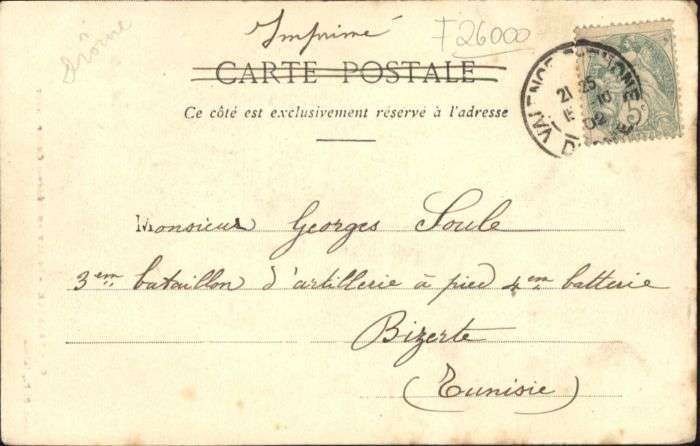 Drôme
Imprimé
F 26000
CARTE POSTALE
Ce côté est exclusivement réservé à l'adresse
VALENCE
21 25
10
02
Monsieur Georges Soule
3em bataillon d'artillerie à pied 4em batterie
Bizerte
(Tunisie)